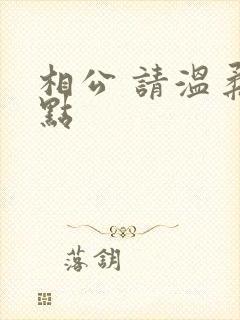 相公 請溫柔
點
落銷